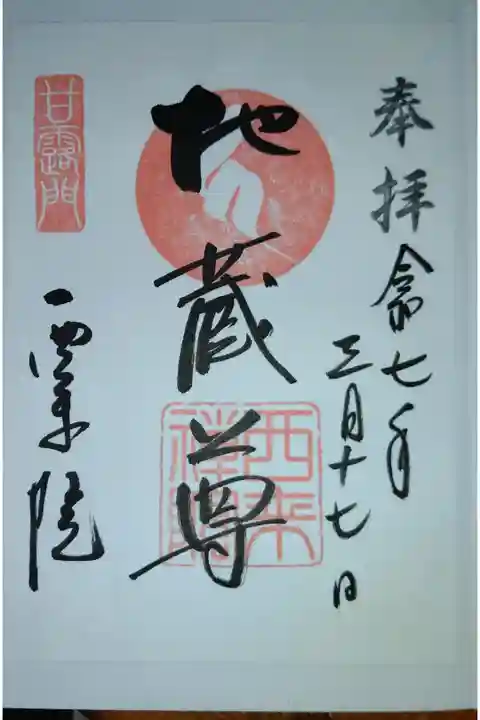 奉拝
令和七年
三月十七日
地蔵尊
甘露門
一粟院